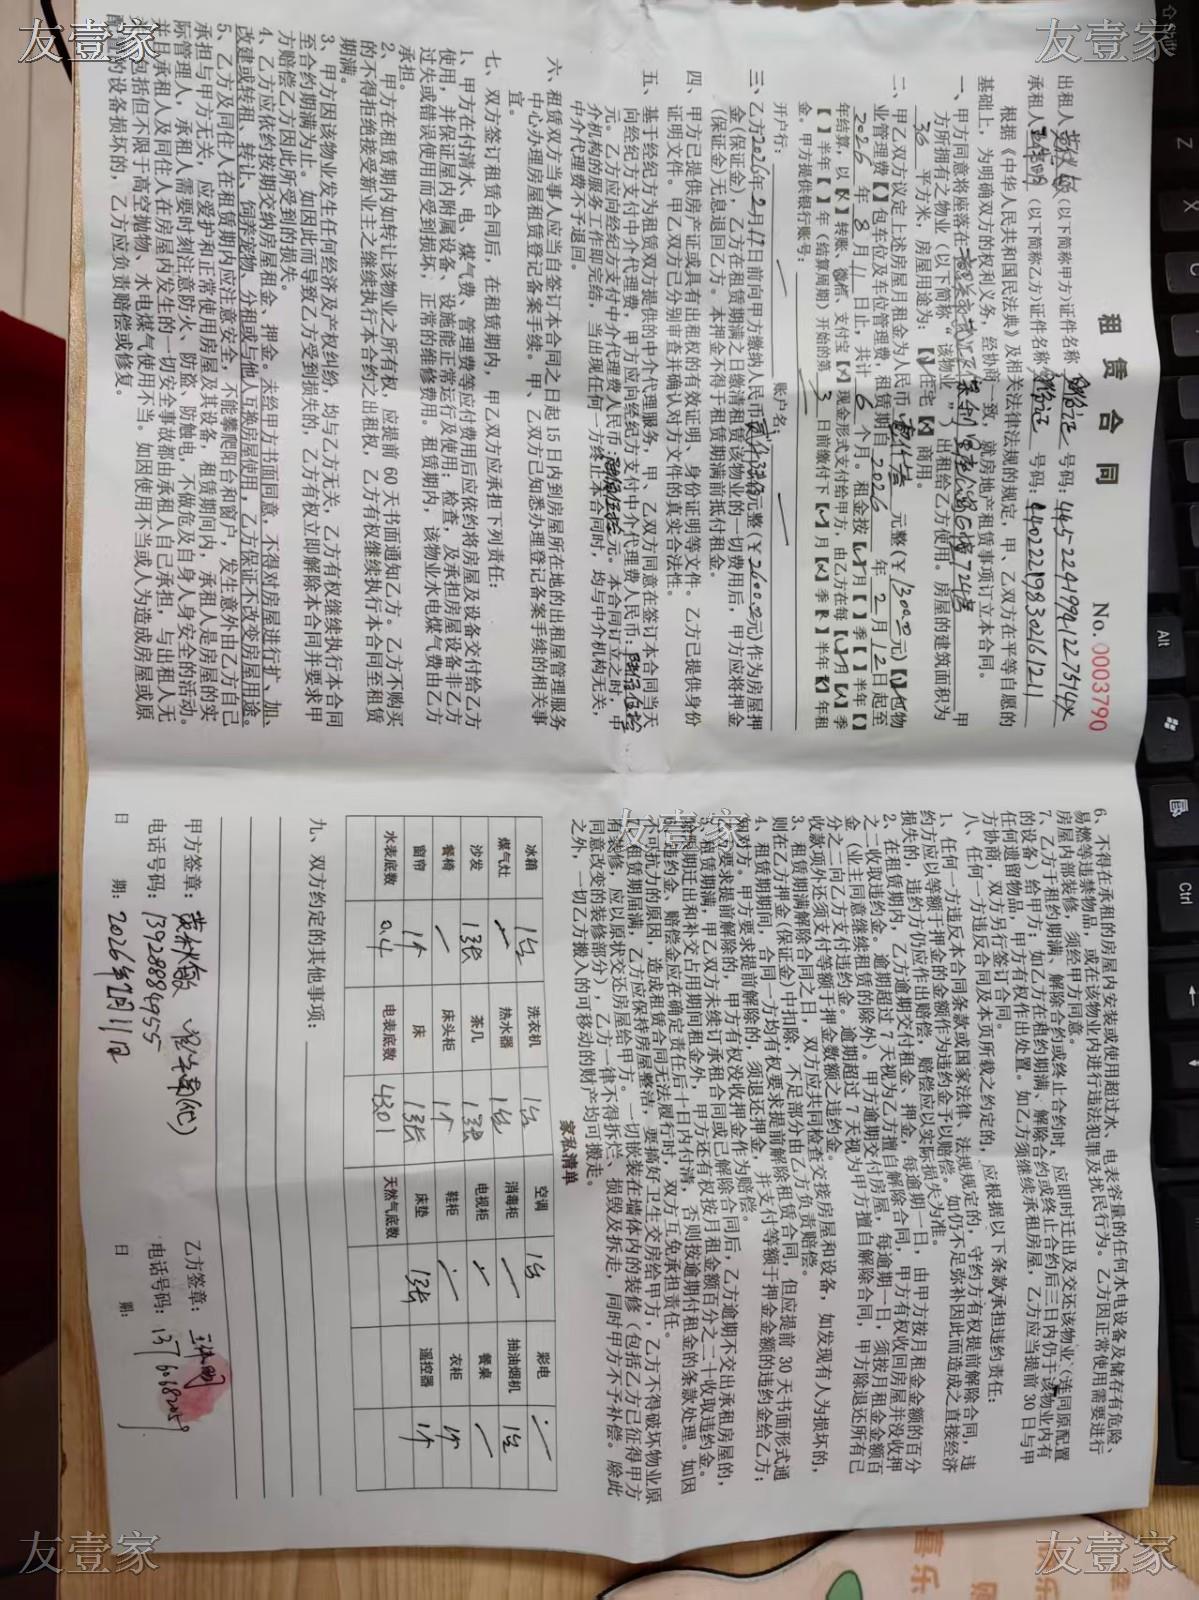 友壹家
友壹家
租赁合同
No. 0003790
出租人 (以下简称甲方)证件名称 号码: 
承租人 (以下简称乙方)证件名称 号码: 
根据《中华人民共和国民法典》及相关法律法规的规定，甲、乙双方在平等自愿的
基础上，为明确双方的权利义务，经协商一致，就房地产租赁事项订立本合同。
一、甲方同意将座落在 724房 甲
方所拥有之物业（以下简称“该物业”）出租给乙方使用。房屋的建筑面积为
36 平方米，房屋用途为：【√】住宅【】商用。
二、甲乙双方议定上述房屋月租金为人民币 元整(￥1300元)【】包物
业管理费【】包车位及车位管理费，租赁期自 2026 年 2 月 12 日起至
2026 年 8 月 11 日止，共计 6 个月。租金按【√】月【】季【】半年【】
年结算，以【】转账、微信、支付宝【】现金形式支付给甲方，由乙方在每【√】月【】季
【】半年【】年（结算周期）开始的第 3 日前缴付下【√】月【】季【】半年【】年租
金。甲方提供银行账号：
开户行： 账户名：
三、乙方2026年2月11日前向甲方缴纳人民币 元整(￥2600元)作为房屋押
金(保证金)，乙方在租赁期满之日缴清租赁该物业的一切费用后，甲方应将押金
(保证金)无息退回乙方。本押金不得于租赁期满前抵付租金。
四、甲方已提供房产证或具有出租权的有效证明、身份证明等文件。乙方已提供身份
证明文件。甲乙双方已分别审查并确认对方文件的真实合法性。
五、基于经纪方为租赁双方提供的中介代理服务，甲、乙双方同意在签订本合同当天
向经纪方支付中介代理费，甲方应向经纪方支付中介代理费人民币：
元。乙方应向经纪方支付中介代理费人民币： 元。本合同订立之时，中
介机构的服务工作即完结，当出现任何一方终止本合同时，均与中介机构无关，
中介代理费不予退回。
六、租赁双方当事人应当自签订本合同之日起 15 日内到房屋所在地的出租屋管理服务
中心办理房屋租赁登记备案手续。甲、乙双方已知悉办理登记备案手续的相关事
宜。
七、双方签订租赁合同后，在租赁期内，甲乙双方应承担下列责任：
1、甲方在付清水、电、煤气费、管理费等应付费用后应依约将房屋及设备交付给乙方
使用，并保证屋内附属设备、设施能正常运行及使用；检查，及承担房屋设备非乙方
过失或错误使用而受到损坏，正常的维修费用。租赁期内，该物业水电煤气费由乙方
承担。
2、甲方在租赁期内如转让该物业之所有权，应提前 60 天书面通知乙方。乙方不购买
的不得拒绝接受新业主之继续执行本合约之出租权，乙方有权继续执行本合同至租赁
期满。
3、甲方因该物业发生任何经济及产权纠纷，均与乙方无关，乙方有权继续执行本合同
至合约期满为止。如因此而导致乙方受到损失的，乙方有权立即解除本合同并要求甲
方赔偿乙方因此所受到的损失。
4、乙方应依约按期交纳房屋租金、押金。未经甲方书面同意，不得对房屋进行扩、加、
改建或转租、转让、饲养宠物、分租或与他人互换房屋使用，乙方保证不改变房屋用途。
5、乙方及同住人在租赁期内应注意安全，不能攀爬阳台和窗户，发生意外由乙方自己
承担与甲方无关，应爱护和正常使用房屋及其设备，租赁期间内，承租人是房屋的实
际管理人，承租人需要时刻注意防火、防盗、防触电，不做危及自身人身安全的活动。
并且承租人及同住人在房屋内发生的一切安全事故都由承租人自己承担，与出租人无
包括但不限于高空抛物、水电煤气使用不当。如因使用不当或人为造成房屋或原
的设备损坏的，乙方应负责赔偿或修复。
友壹家
6、不得在承租的房屋内安装或使用超过水、电表容量的任何水电设备及储存有危险、
易燃等违禁物品，或在该物业内进行违法犯罪及扰民行为。乙方因正常使用需要进行
房屋内部装修，须经甲方同意。
7、乙方于租约期满、解除合约或终止合约时，应即时迁出及交还该物业（连同原配置
的设备）给甲方；如乙方在租约期满、解除合约或终止合约后三日内仍于该物业内有
任何遗留物品，甲方有权作出处置。如乙方须继续承租房屋，乙方应当提前 30 日与甲
方协商，双方另行签订合同。
八、任何一方违反合同及本页所载之约定的，应根据以下条款承担违约责任：
1、任何一方违反本合同条款或国家法律、法规规定的，守约方有权提前解除合同，违
约方应以等额于押金的金额作为违约金予以赔偿。如仍不足弥补因此而造成之直接经济
损失的，违约方仍应作出赔偿，赔偿应以实际损失为准。
2、在租赁期内，乙方逾期交付租金、押金，每逾期一日，由甲方按月租金金额的百分
之二收取违约金。逾期超过 7 天视为乙方擅自解除合同，甲方有权收回房屋并没收押
金（业主同意继续租赁的除外）。甲方逾期交付房屋，每逾期一日，须按月租金金额百
分之二向乙方支付违约金。逾期超过 7 天视为甲方擅自解除合同，甲方除退还所有已
收款项外还须支付等额于押金数额之违约金。
3、租赁期满解除合同之日，双方应共同检查交接房屋和设备，如发现有人为损坏的，
则在乙方押金（保证金）中扣除，不足部分由乙方负责赔偿。
4、租赁期期间，合同一方均有权要求提前解除租赁合同，但应提前 30 天书面形式通
知对方。甲方要求提前解除的，须退还押金，并支付等额于押金金额的违约金给乙方；
要求提前解除的，甲方有权没收押金作为赔偿。
租赁期满，甲乙双方未续订承租合同或已解除合同后，乙方逾期不交出承租房屋的，
限期迁出和补交占用期间租金外，甲方还有权按月租金额百分之二十收取违约金。
违约金、赔偿金应在确定责任后十日内付清，否则按逾期付租金的条款处理。如因
不可抗力的原因，造成租赁合同无法履行时，双方互免承担责任。
租赁期届满，乙方应保持房屋整洁，要搞好卫生交房给甲方，乙方不得破坏物业原
有装修，应以原状交还房屋给甲方。一切嵌装在墙体内的装修（包括乙方已征得甲方
同意改变的装修部分），乙方一律不得拆烂、损毁及拆走，同时甲方不予补偿。除此
之外，一切乙方搬入的可移动的财产均可搬走。
家私清单
冰箱 1台 洗衣机 1台 空调 1台 彩电
煤气灶 热水器 1台 消毒柜 抽油烟机 1台
沙发 1张 茶几 1张 电视柜 餐桌
餐椅 床头柜 1个 鞋柜 衣柜 1个
窗帘 1个 床 1张 床垫 1张 遥控器 1个
水表底数 电表底数 4301 天然气底数
九、双方约定的其他事项：
甲方签章： 乙方签章：
电话号码：13928884955 电话号码：
日 期：2026年2月11日 日 期：
友壹家
友壹家
Alt
Ctrl
Z
X
C